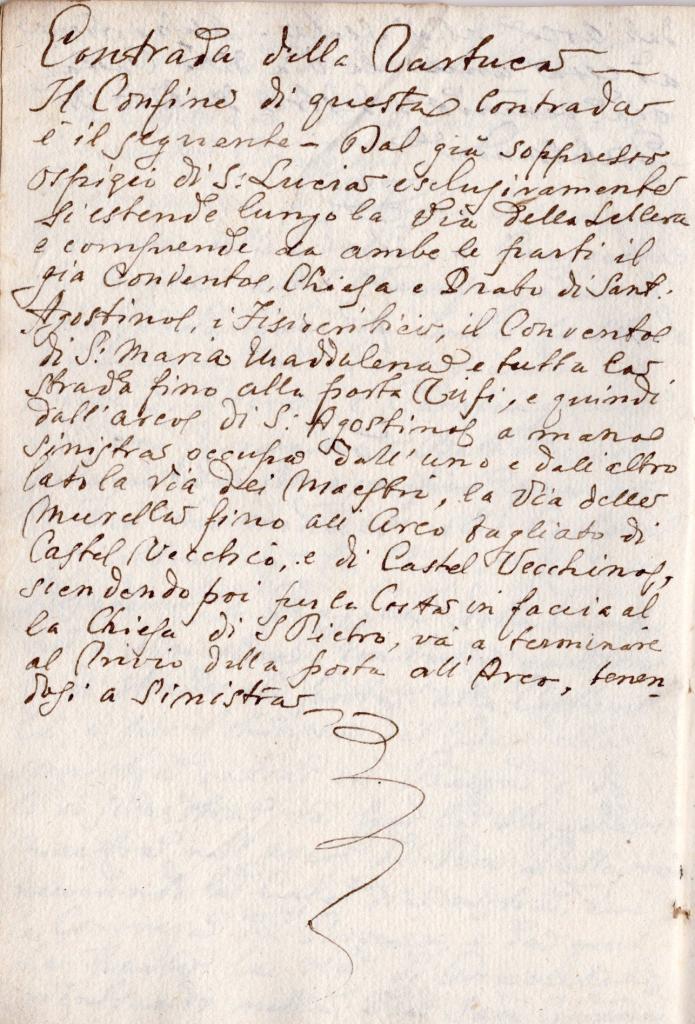 Contrada della Tartuca
Il Confine di questa Contrada
è il seguente - Dal già soppresso
ospizio di S: Lucia esclusivamente
si estende lungo la Via della
e comprende da ambe le parti il
già Convento, Chiesa e Prato di Sant:
Agostino, i Fisiocritici, il Convento
di S: Maria Maddalena e tutta la
strada fino alla porta Tufi, e quindi
dall'arco di S: Agostino a mano
sinistra occupa dall'uno e dall'altro
lato la via dei Maestri, la Via delle
Murella fino all'Arco tagliato di
Castel Vecchio, e di Castel Vecchino,
scendendo poi per la Costa in faccia al
la Chiesa di S Pietro, và a terminare
al Trivio della porta all'Arco, tenen
dosi a Sinistra